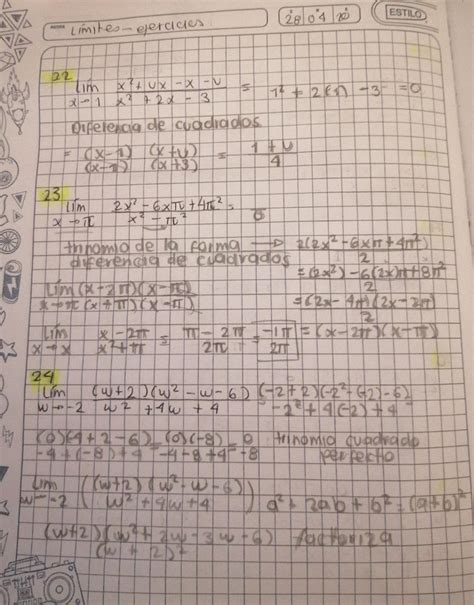 Límites - ejercicios
28 04 20
ESTILO
22
lím x→1 x²+ux-x-u / x²+2x-3 = 1²+2(1)-3=0
Diferencia de cuadrados
= (x-1)(x+u) / (x-1)(x+3) = 1+u / 4
23
lím x→π 2x²-6xπ+4π² / x²-π² = / 0
trinomio de la forma → 2(2x²-6xπ+4π²) / 2
diferencia de cuadrados = (2x²)-6(2x)π+8π² / 2
lím x→π (x-2π)(x-π) / (x+π)(x-π) = (2x-4π)(2x-2π) / 2
lím x→x x-2π / x²+π = π-2π / 2π = -1π / 2π = (x-2π)(x-π)
24
lím w→-2 (w+2)(w²-w-6) / w²+4w+4 (-2+2)(-2²-(-2)-6) / -2²+4(-2)+4 =
(0)(-4+2-6) / -4+(-8)+4 = (0)(-8) / -4-8+4 = 0 / -8 trinomio cuadrado
perfecto
lím w→-2 ((w+2)(w²-w-6) / w²+4w+4) a²+2ab+b²=(a+b)²
(w+2)(w²+2w-3w-6) / (w+2)² factoriza